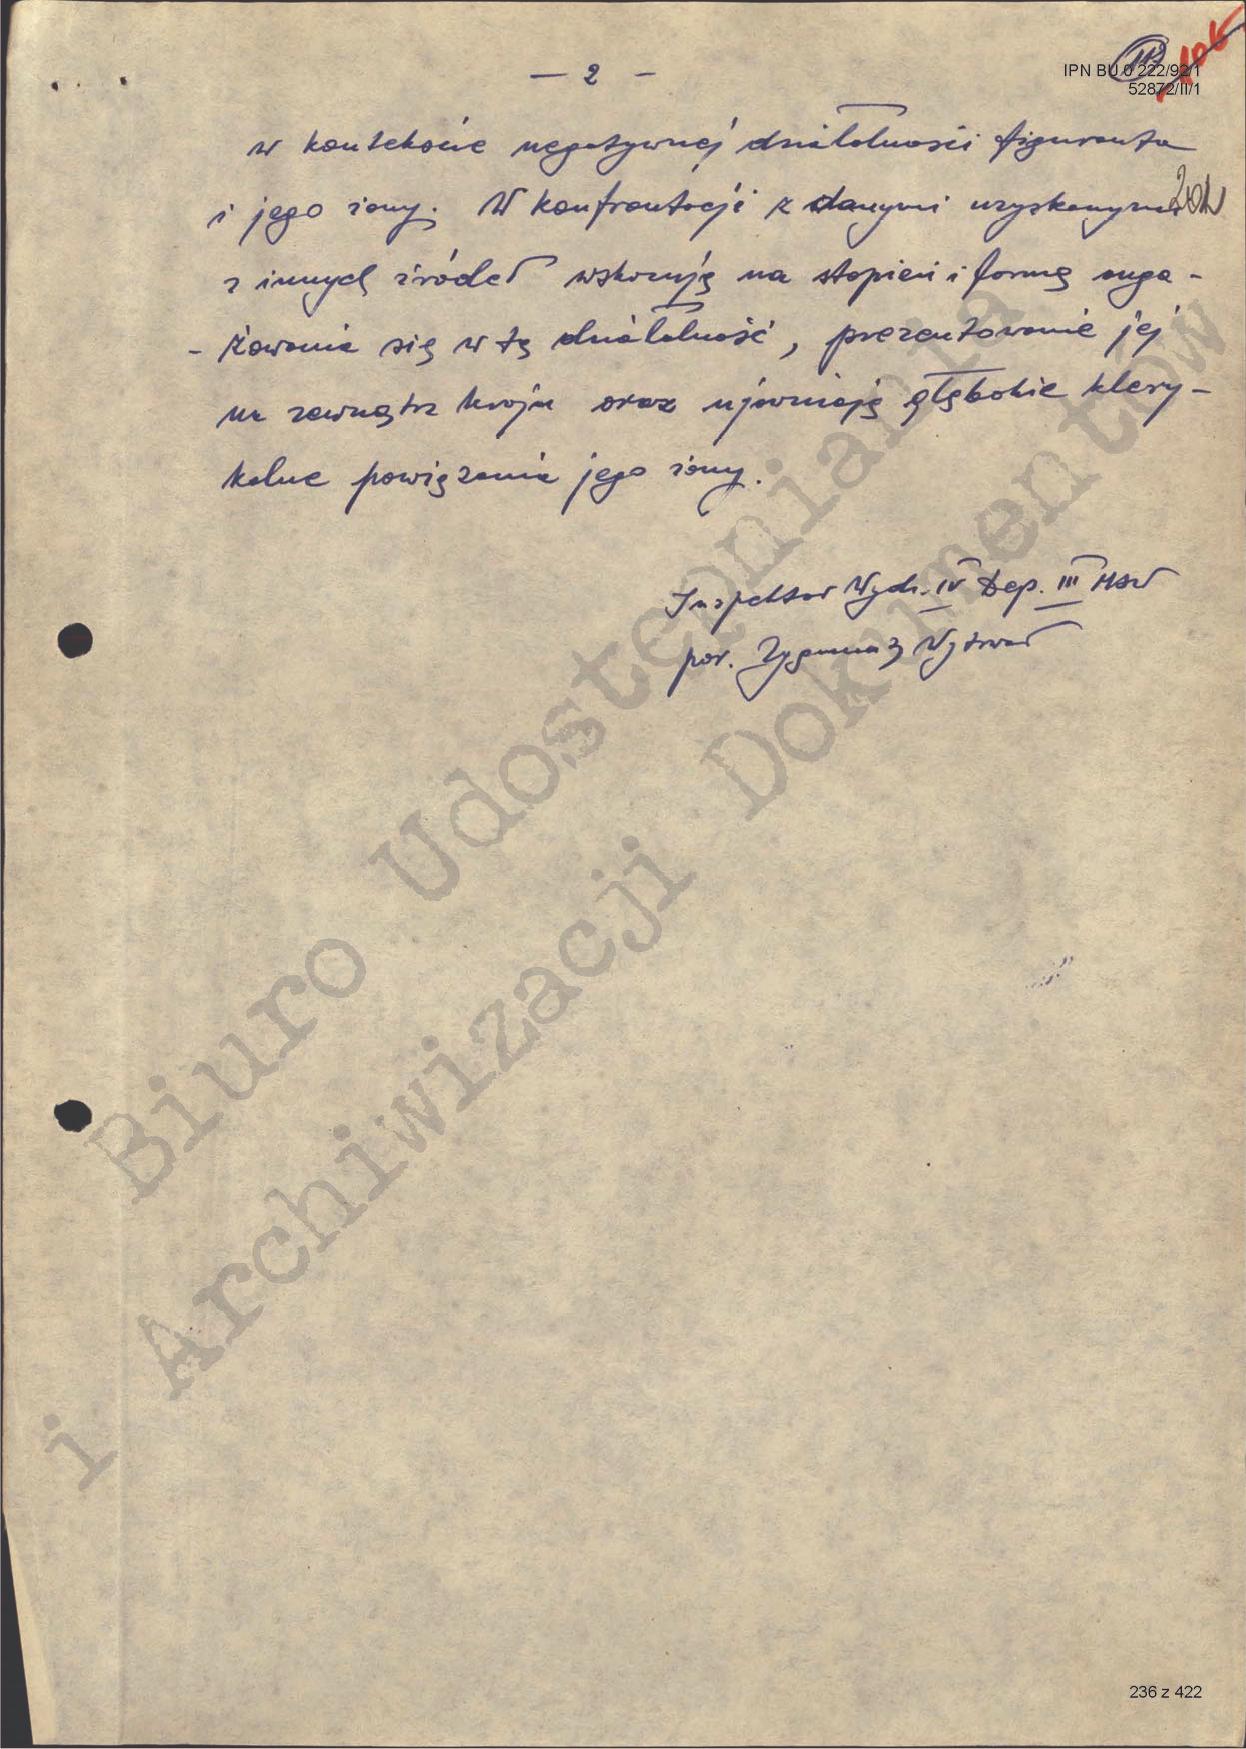 IPN BU 0 222/92/1
52872/II/1
— 2 —
w kontekście negatywnej działalności figuranta
i jego żony. W konfrontacji z danymi uzyskanymi
z innych źródeł wskazują na stopień i formę anga-
-żowania się w tę działalność, prezentowanie jej
na zewnątrz kraju oraz ujawniają głębokie klery-
kalne powiązania jego żony.
Inspektor Wydz. IV Dep. III MSW
por. Zygmunt
Biuro Udostępniania
i Archiwizacji Dokumentów
236 z 422